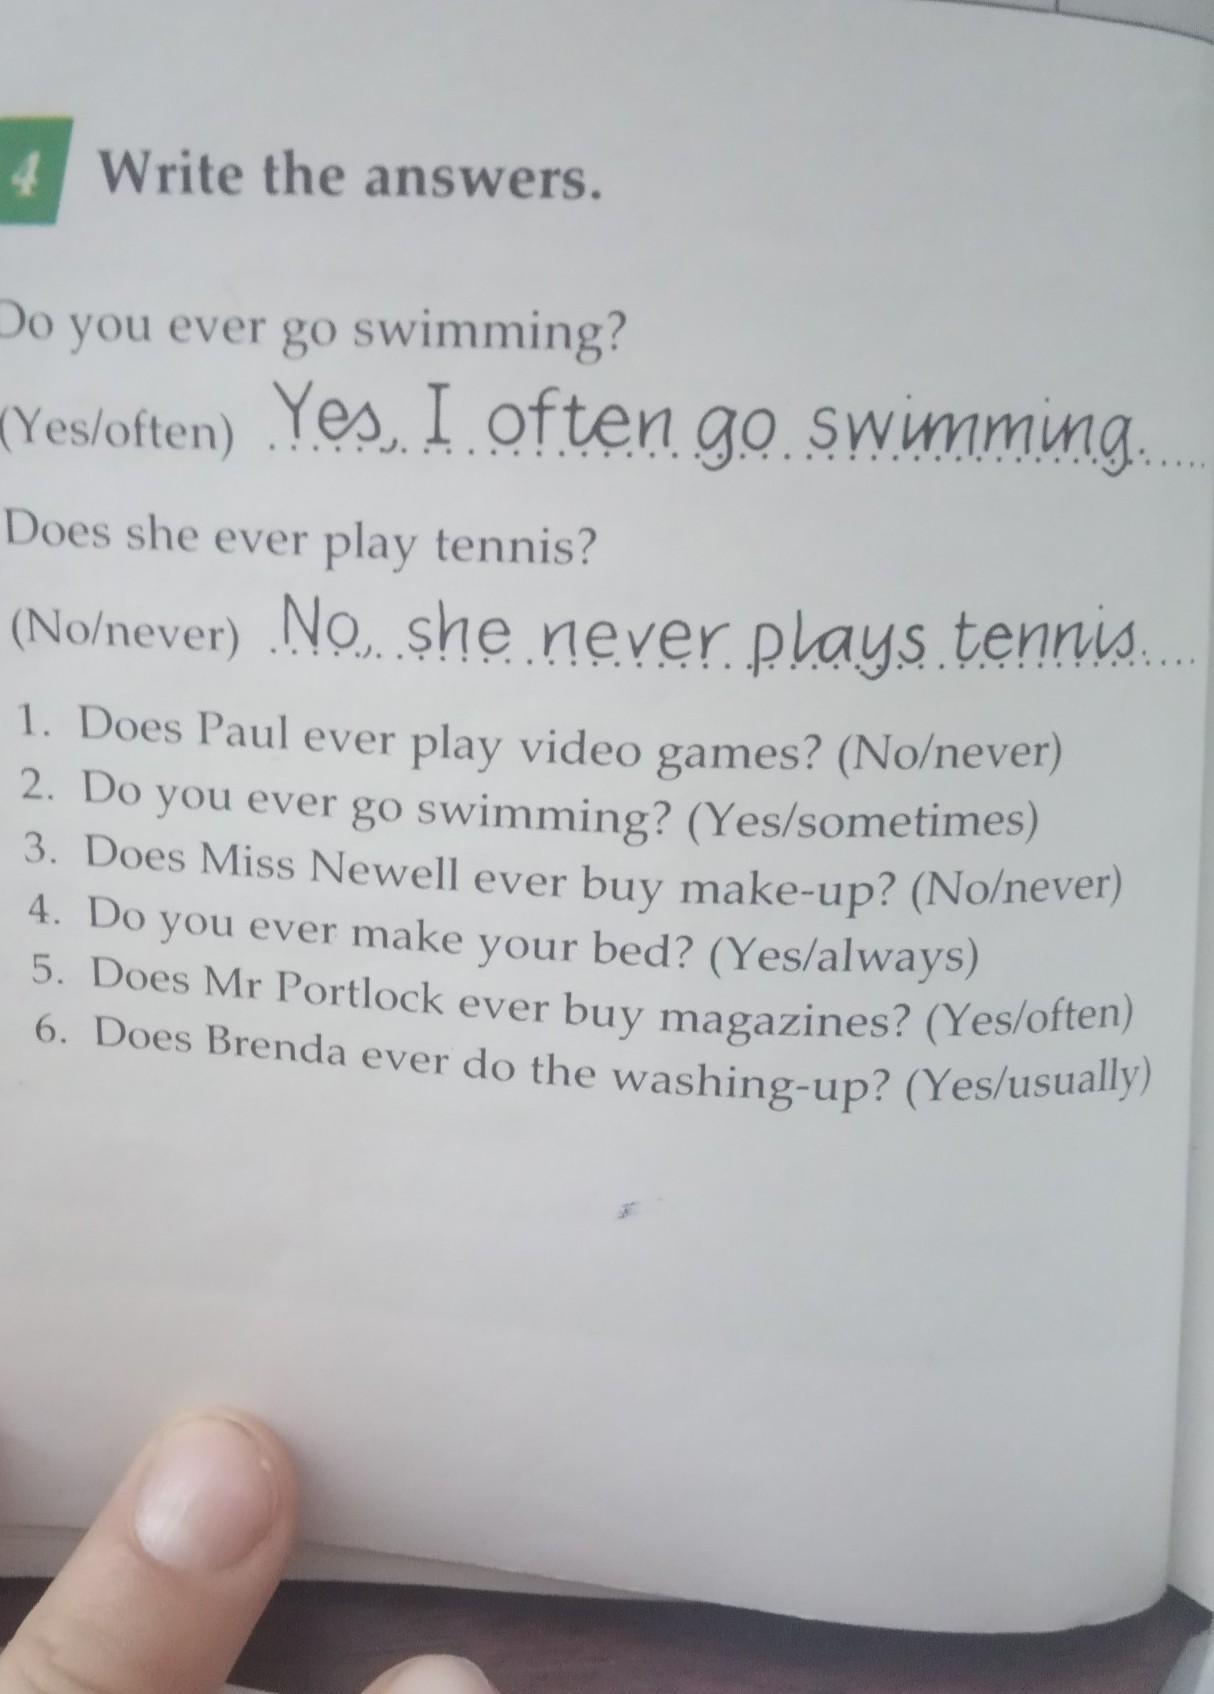 4 Write the answers.
Do you ever go swimming?
(Yes/often) Yes, I often go swimming.
Does she ever play tennis?
(No/never) No, she never plays tennis.
1. Does Paul ever play video games? (No/never)
2. Do you ever go swimming? (Yes/sometimes)
3. Does Miss Newell ever buy make-up? (No/never)
4. Do you ever make your bed? (Yes/always)
5. Does Mr Portlock ever buy magazines? (Yes/often)
6. Does Brenda ever do the washing-up? (Yes/usually)